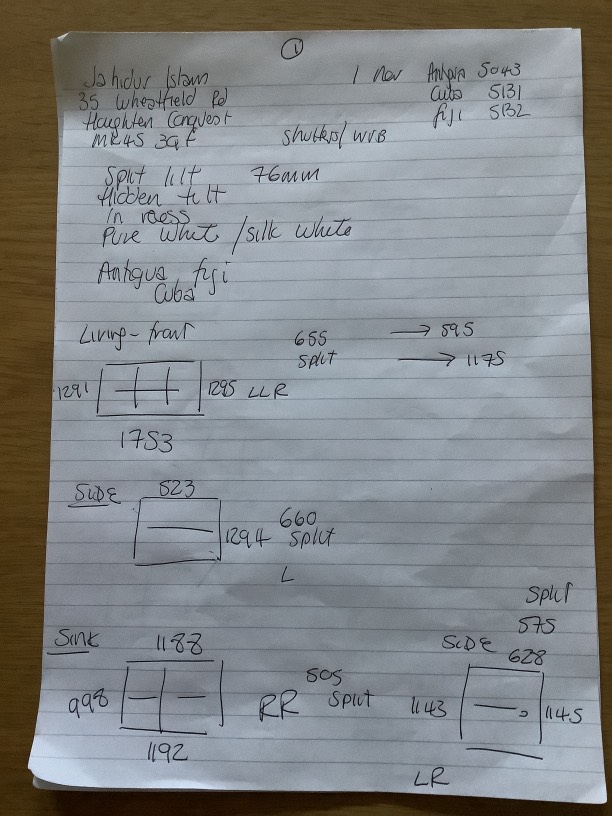 1
Jahidur Islam
1 Nov Antigua 5043
35 Wheatfield Rd
Cuba 5131
Houghten Conquest
fiji 5132
MK45 3QF
Shutters/WVB
Split tilt 76mm
Hidden tilt
In recess
Pure White /silk white
Antigua fiji
Cuba
Living - front
655
Split
→ 595
→ 1175
1291
1295 LLR
1753
SIDE
523
1294
660
Split
L
Sink
1188
998
RR
505
Split
1192
Split
575
SIDE
628
1143
1145
LR